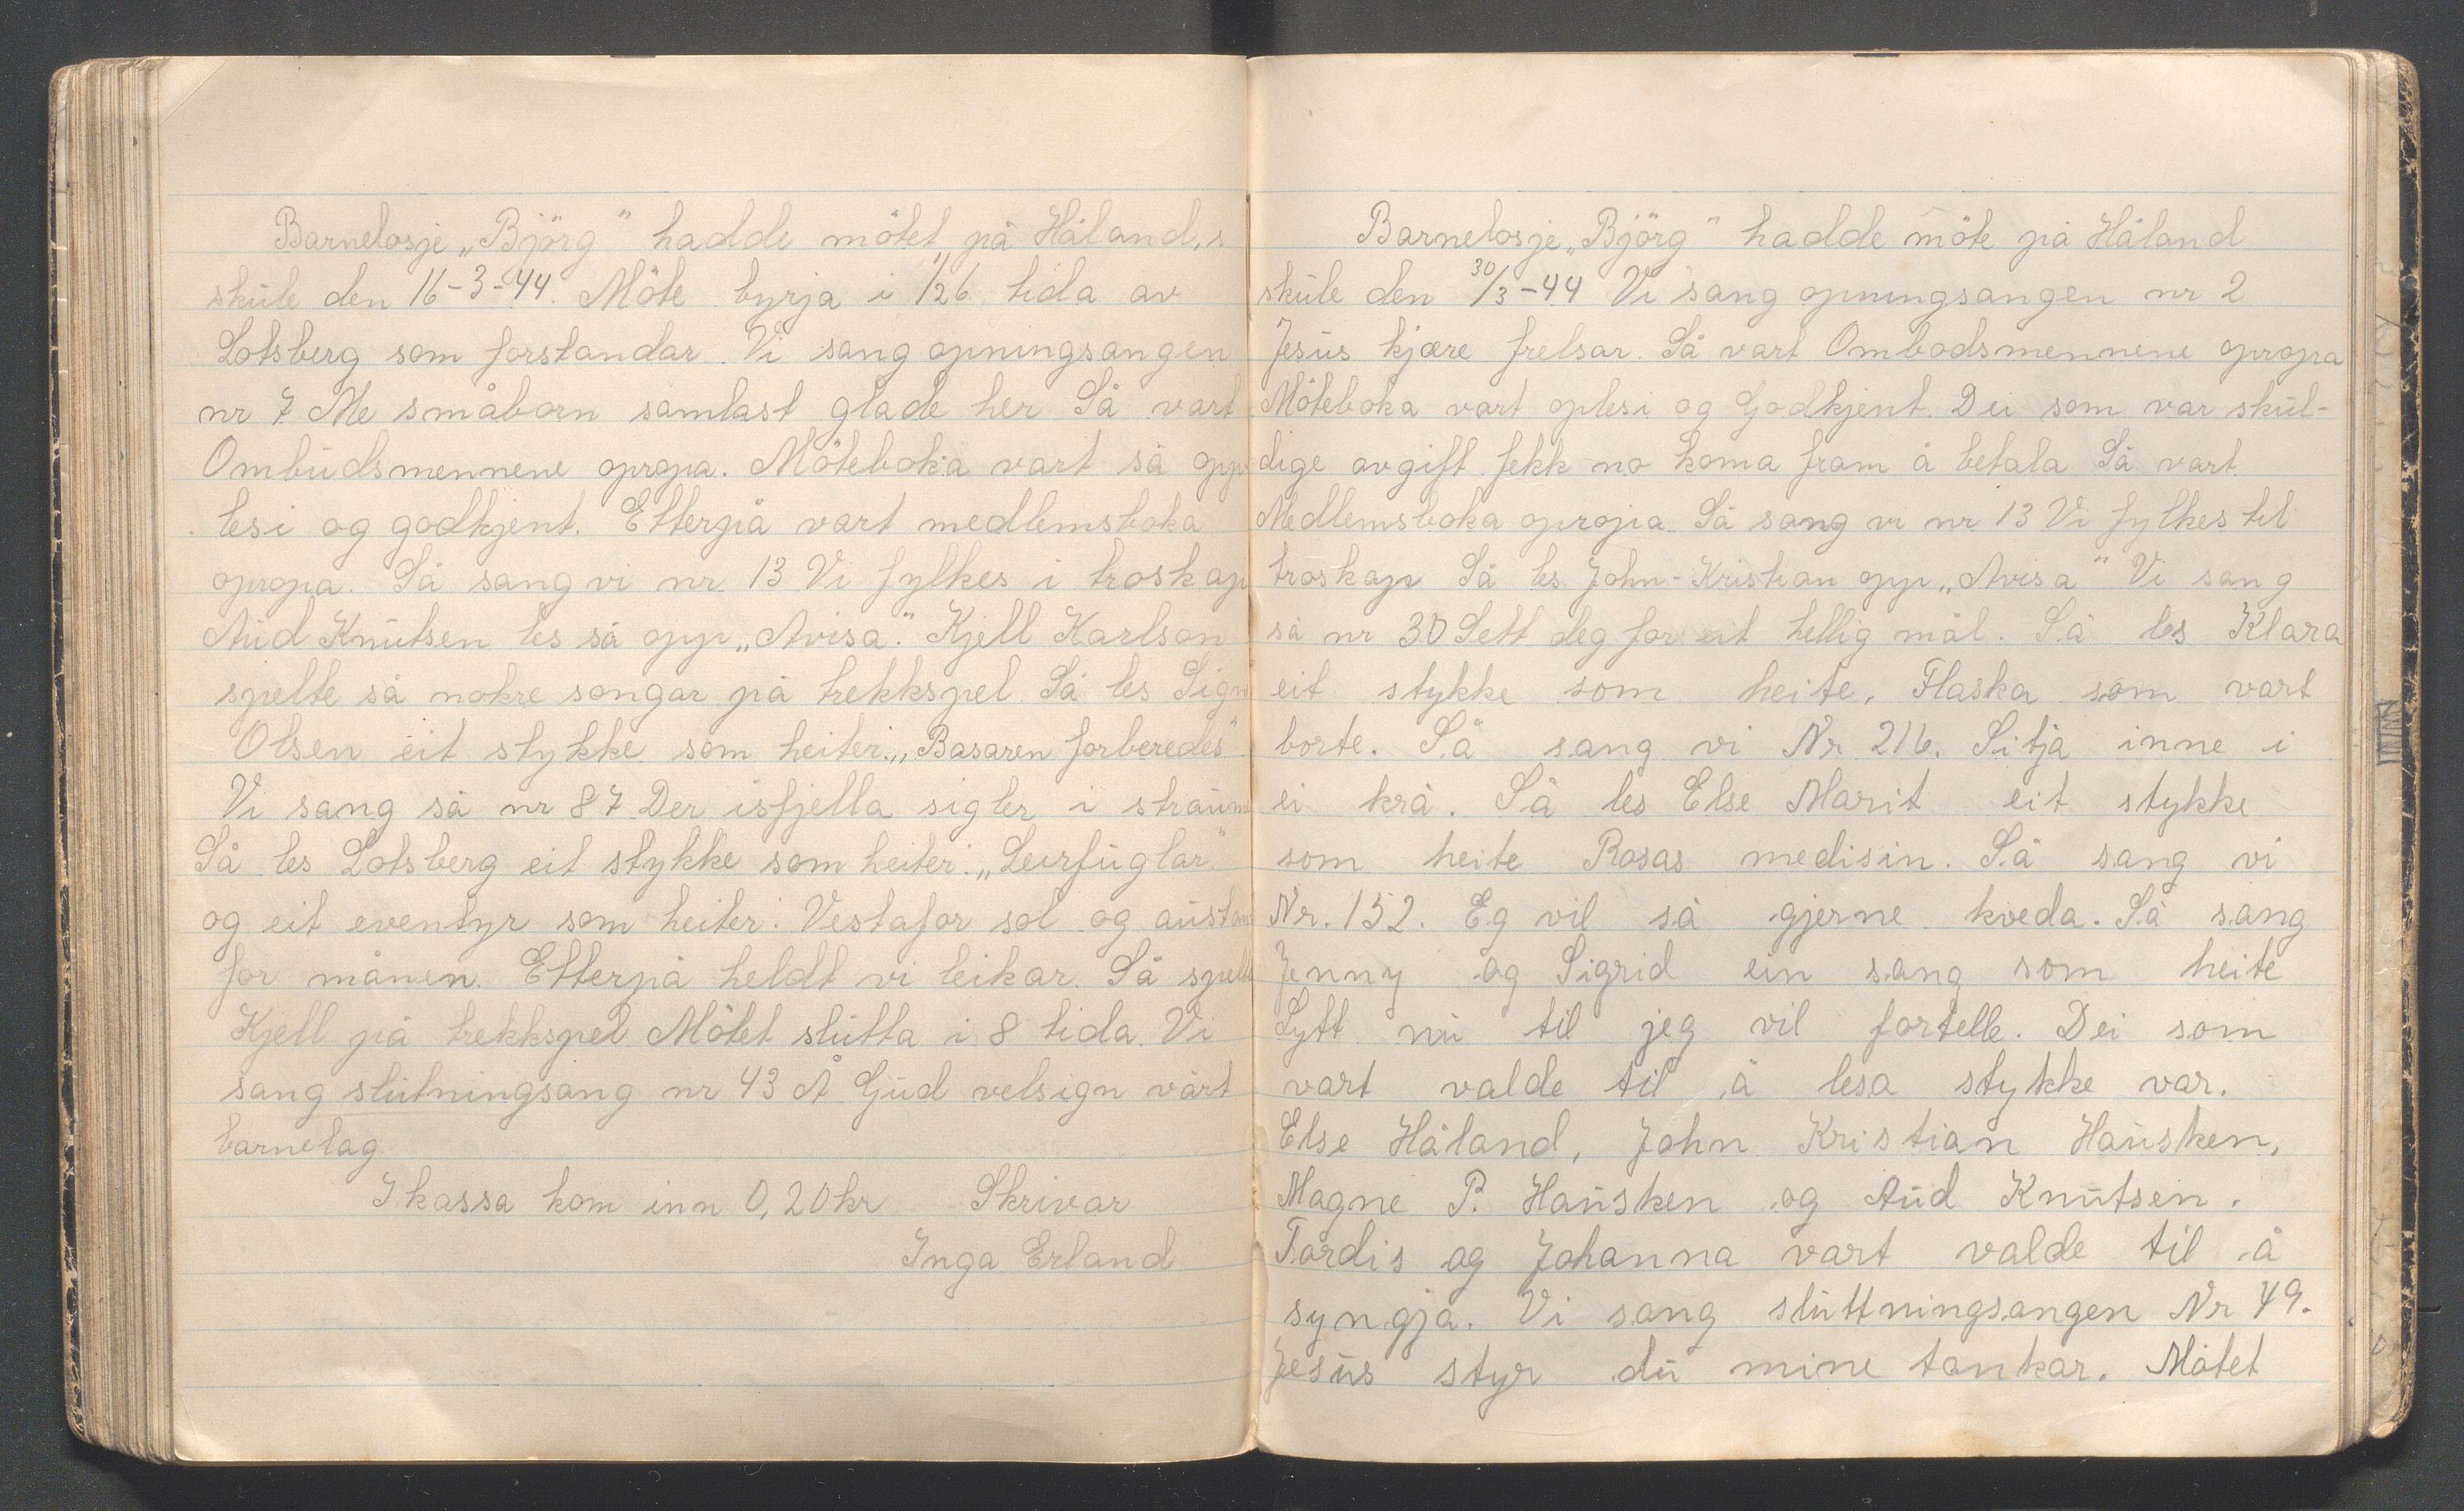 Barnelosje „Björg" hadde mötet på Håland,s
skule den 16-3-44. Möte byrja i 1/26 tida av
Lotsberg som forstandar. Vi sang opningsangen
nr 7. Me småborn samlast glade her Så vart
Ombudsmennene opropa. Möteboka vart så opp
lesi og godkjent. Etterpå vart medlemsboka
opropa. Så sang vi nr 13 Vi fylkes i troskap
Aud Knutsen les så opp „Avisa." Kjell Karlson
spelte så nokre songar på trekkspel. Så les Sign
Olsen eit stykke som heiter: „Basaren forberedes"
Vi sang så nr 87 Der isfjella sigler i straum
Så les Lotsberg eit stykke som heiter: „Leirfuglar."
og eit eventyr som heiter: Vestafor sol og austan
for månen. Etterpå heldt vi leikar. Så spelte
Kjell på trekkspel Mötet slutta i 8 tida. Vi
sang slutningsang nr 43 Å Gud velsign vårt
barnelag.
I kassa kom inn 0,20 kr Skrivar
Inga Erland
Barnelosje „Björg" hadde möte på Håland
skule den 30/3-44 Vi sang opningsangen nr 2
Jesus kjære frelsar. Så vart Ombodsmennene opropa
Möteboka vart oplesi og Godkjent. Dei som var skul-
dige avgift fekk no koma fram å betala Så vart
Medlemsboka opropa. Så sang vi nr 13 Vi fylkes til
troskap Så les John-Kristian opp „Avisa" Vi sang
så nr 30 Sett deg for eit hellig mål. Så les Klara
eit stykke som heite, Flaska som vart
borte. Så sang vi Nr 216. Sitja inne i
ei krå. Så les Else Marit eit stykke
som heite Rosas medisin. Så sang vi
Nr. 152. Eg vil så gjerne kveda. Så sang
Jenny og Sigrid ein sang som heite
Lytt nu til jeg vil fortelle. Dei som
vart valde til å lesa stykke var.
Else Håland, John Kristian Hausken,
Magne P. Hausken og Aud Knutsen.
Tordis og Johanna vart valde til å
syngja. Vi sang sluttningsangen Nr 49.
Jesus styr du mine tankar. Mötet